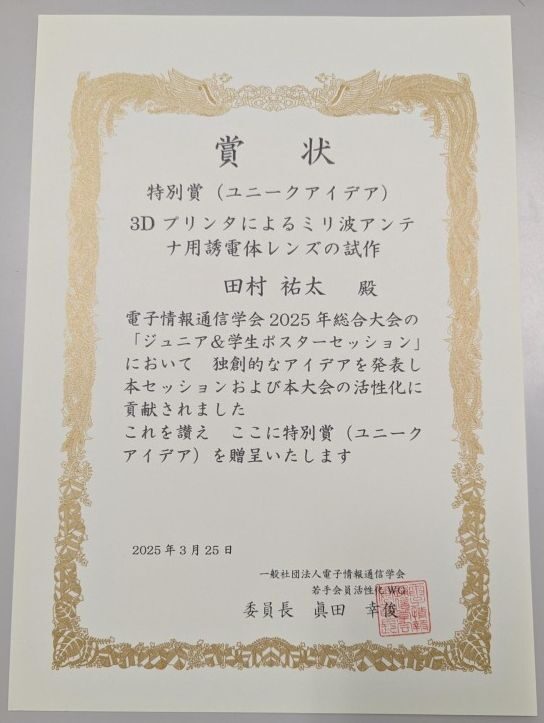 賞 状
特別賞（ユニークアイデア）
3D プリンタによるミリ波アンテ
ナ用誘電体レンズの試作
田村 祐太 殿
電子情報通信学会 2025 年総合大会の
「ジュニア＆学生ポスターセッション」
において 独創的なアイデアを発表し
本セッションおよび本大会の活性化に
貢献されました
これを讃え ここに特別賞（ユニーク
アイデア）を贈呈いたします
2025 年 3 月 25 日
一般社団法人電子情報通信学会
若手会員活性化 WG
委員長 眞田 幸俊